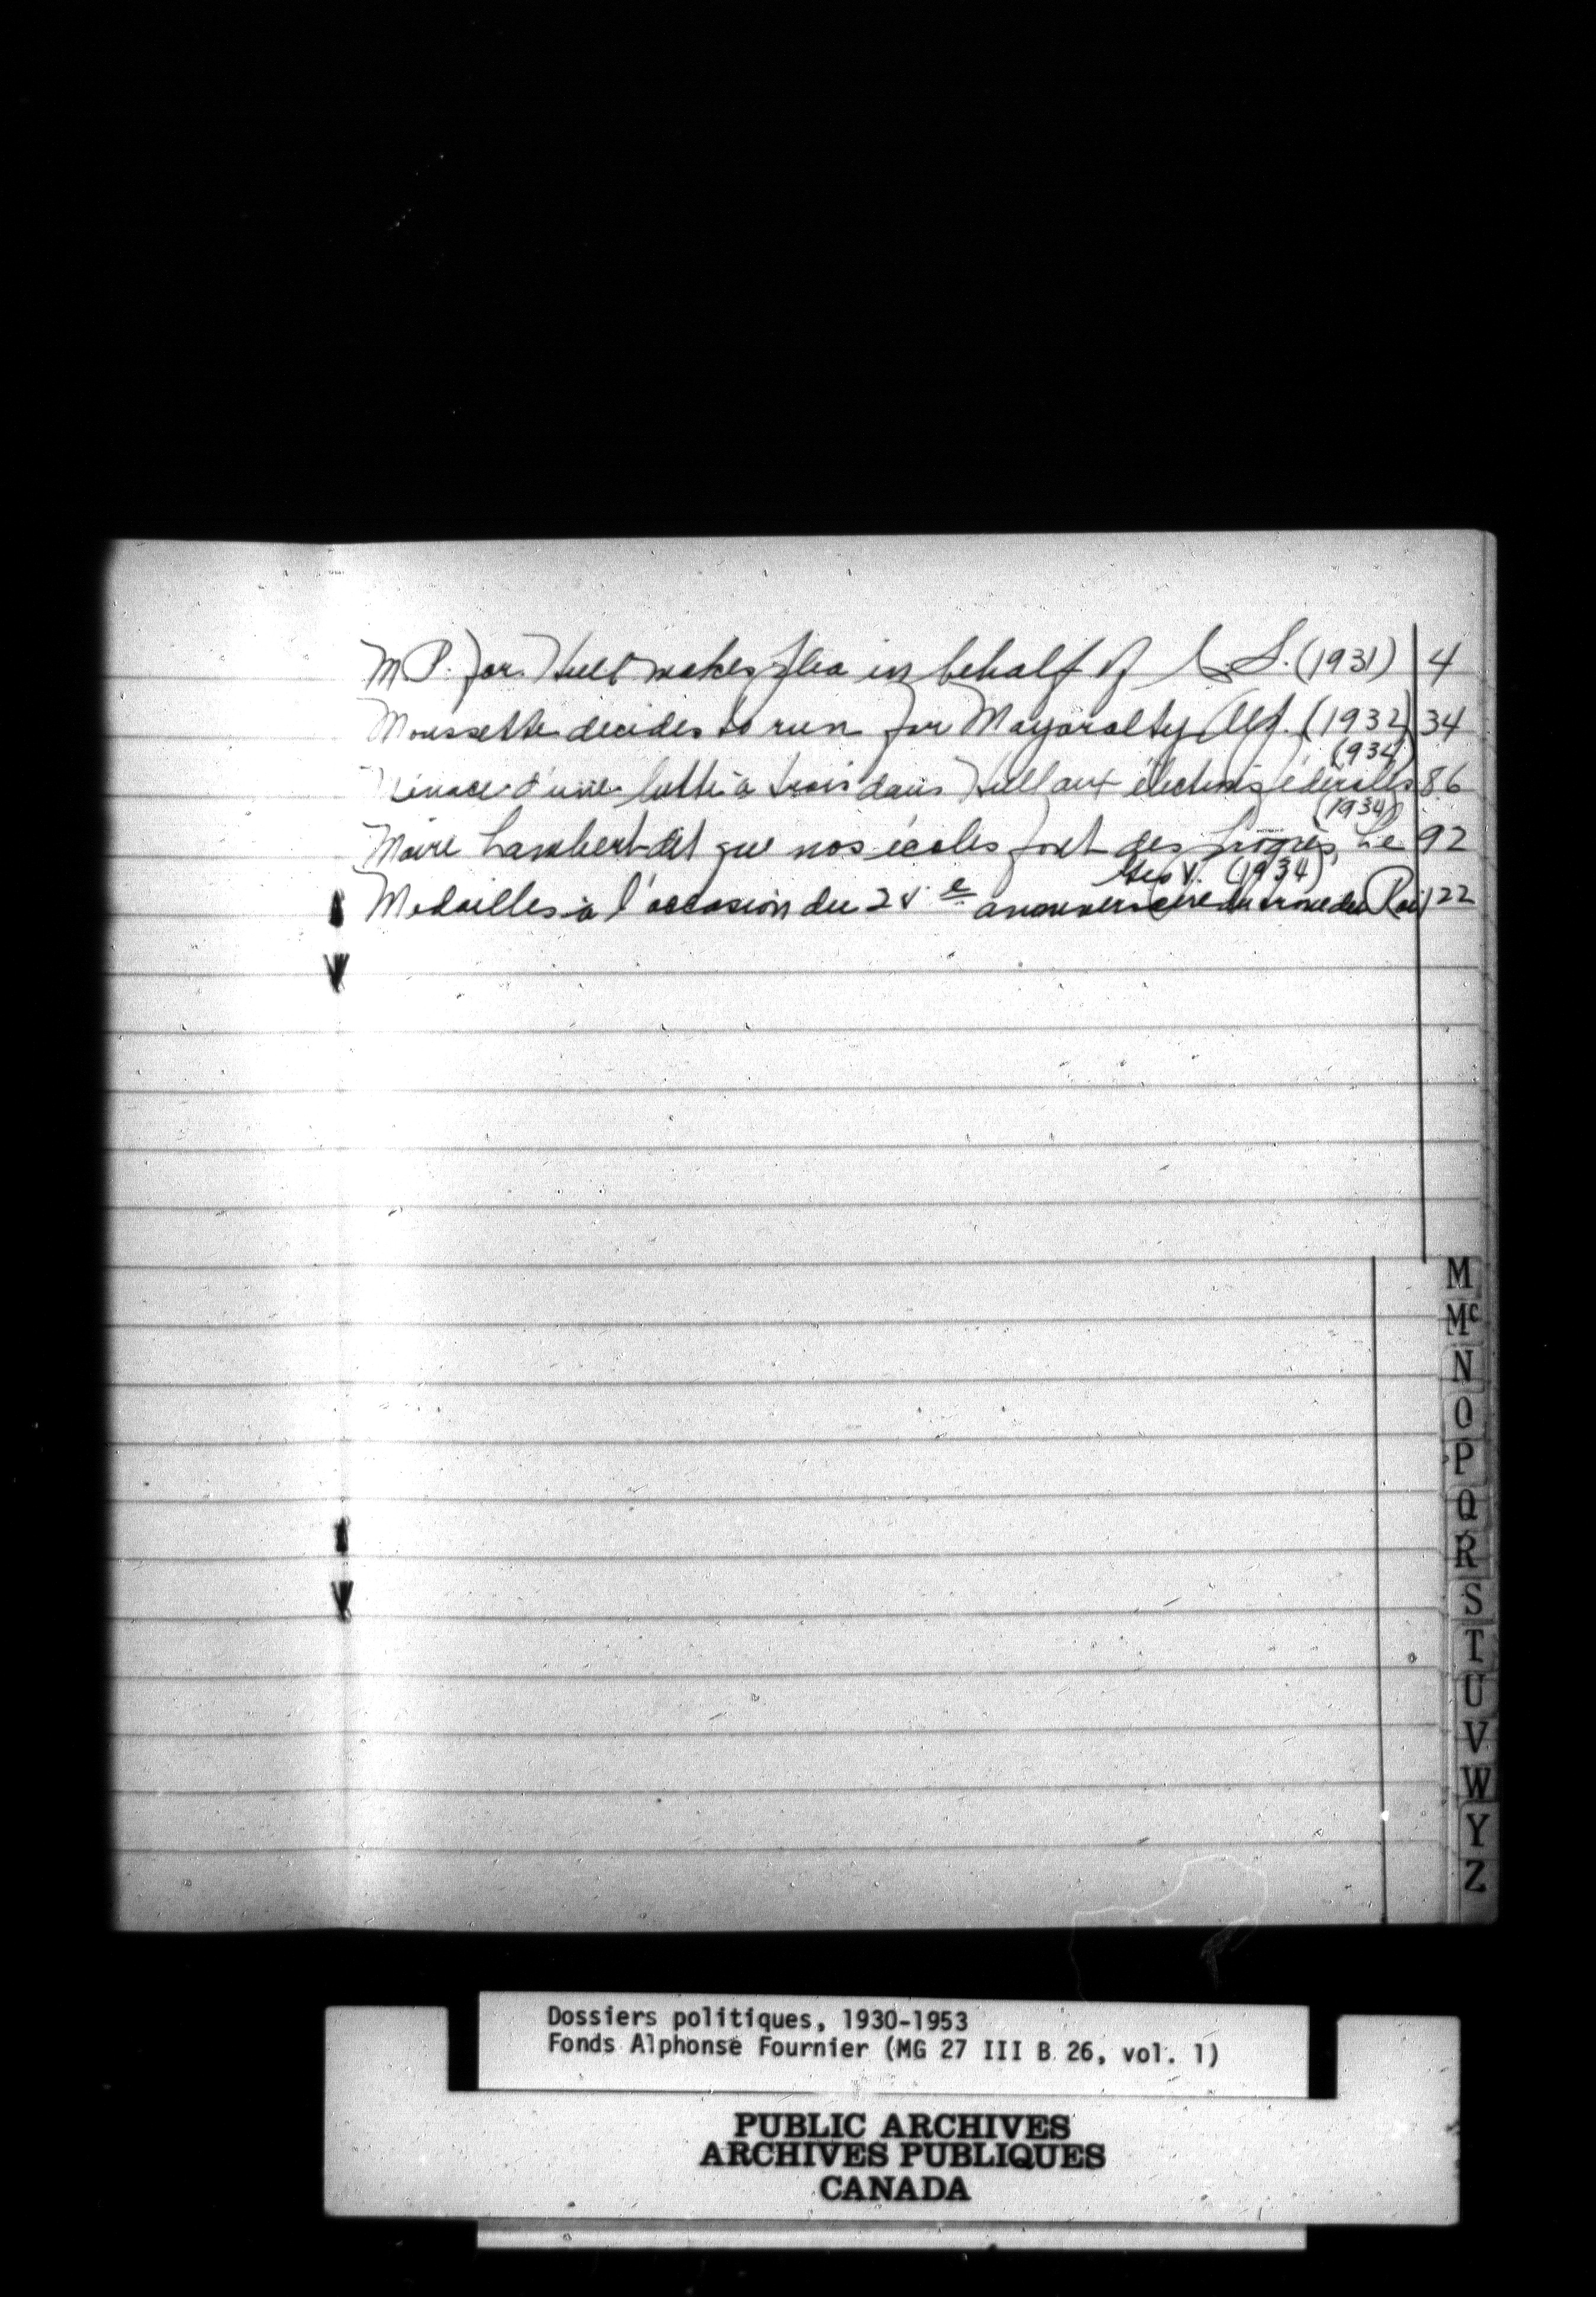 M P. for Hull makes plea in behalf of C. S. (1931) 4
Moussette decides to run for Mayoralty Alf. (1932) 34
(1934)
Menace d'une lutte à trois dans Hull aux élections féderales 86
(1934)
Maire Lambert dit que nos écoles font des progrès, Le 92
Geo V. (1934)
Medailles à l'occasion du 25e anniversaire du trone du Roi 122
M
Mc
N
O
P
Q
R
S
T
U
V
W
Y
Z
Dossiers politiques, 1930-1953
Fonds Alphonse Fournier (MG 27 III B 26, vol. 1)
PUBLIC ARCHIVES
ARCHIVES PUBLIQUES
CANADA